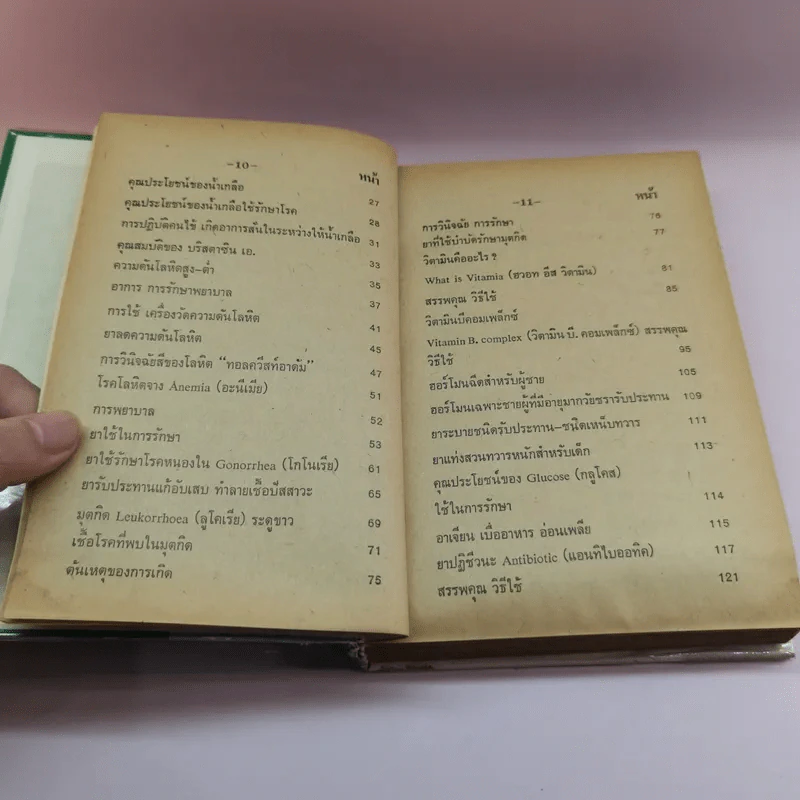 -10-
หน้า
คุณประโยชน์ของน้ำเกลือ 27
คุณประโยชน์ของน้ำเกลือใช้รักษาโรค 28
การปฏิบัติคนไข้ เกิดอาการสั่นในระหว่างให้น้ำเกลือ 31
คุณสมบัติของ บริสตาซิน เอ. 33
ความดันโลหิตสูง-ต่ำ 35
อาการ การรักษาพยาบาล 37
การใช้ เครื่องวัดความดันโลหิต 41
ยาลดความดันโลหิต 45
การวินิจฉัยสีของโลหิต “ทอลควีสท์อาดัม” 47
โรคโลหิตจาง Anemia (อะนีเมีย) 51
การพยาบาล 52
ยาใช้ในการรักษา 53
ยาใช้รักษาโรคหนองใน Gonorrhea (โกโนเรีย) 61
ยารับประทานแก้อับเสบ ทำลายเชื้อปัสสาวะ 65
มุตกิด Leukorrhoea (ลูโคเรีย) ระดูขาว 69
เชื้อโรคที่พบในมุตกิด 71
ต้นเหตุของการเกิด 75
-11-
หน้า
การวินิจฉัย การรักษา 76
ยาที่ใช้บำบัดรักษามุตกิด 77
วิตามินคืออะไร ?
What is Vitamia (ฮวอท อีส วิตามิน) 81
สรรพคุณ วิธีใช้ 85
วิตามินบีคอมเพล็กซ์
Vitamin B. complex (วิตามิน บี. คอมเพล็กซ์) สรรพคุณ
วิธีใช้ 95
ฮอร์โมนฉีดสำหรับผู้ชาย 105
ฮอร์โมนเฉพาะชายผู้ที่มีอายุมากวัยชรารับประทาน 109
ยาระบายชนิดรับประทาน-ชนิดเหน็บทวาร 111
ยาแท่งสวนทวารหนักสำหรับเด็ก 113
คุณประโยชน์ของ Glucose (กลูโคส)
ใช้ในการรักษา 114
อาเจียน เบื่ออาหาร อ่อนเพลีย 115
ยาปฏิชีวนะ Antibiotic (แอนทิไบออทิค) 117
สรรพคุณ วิธีใช้ 121